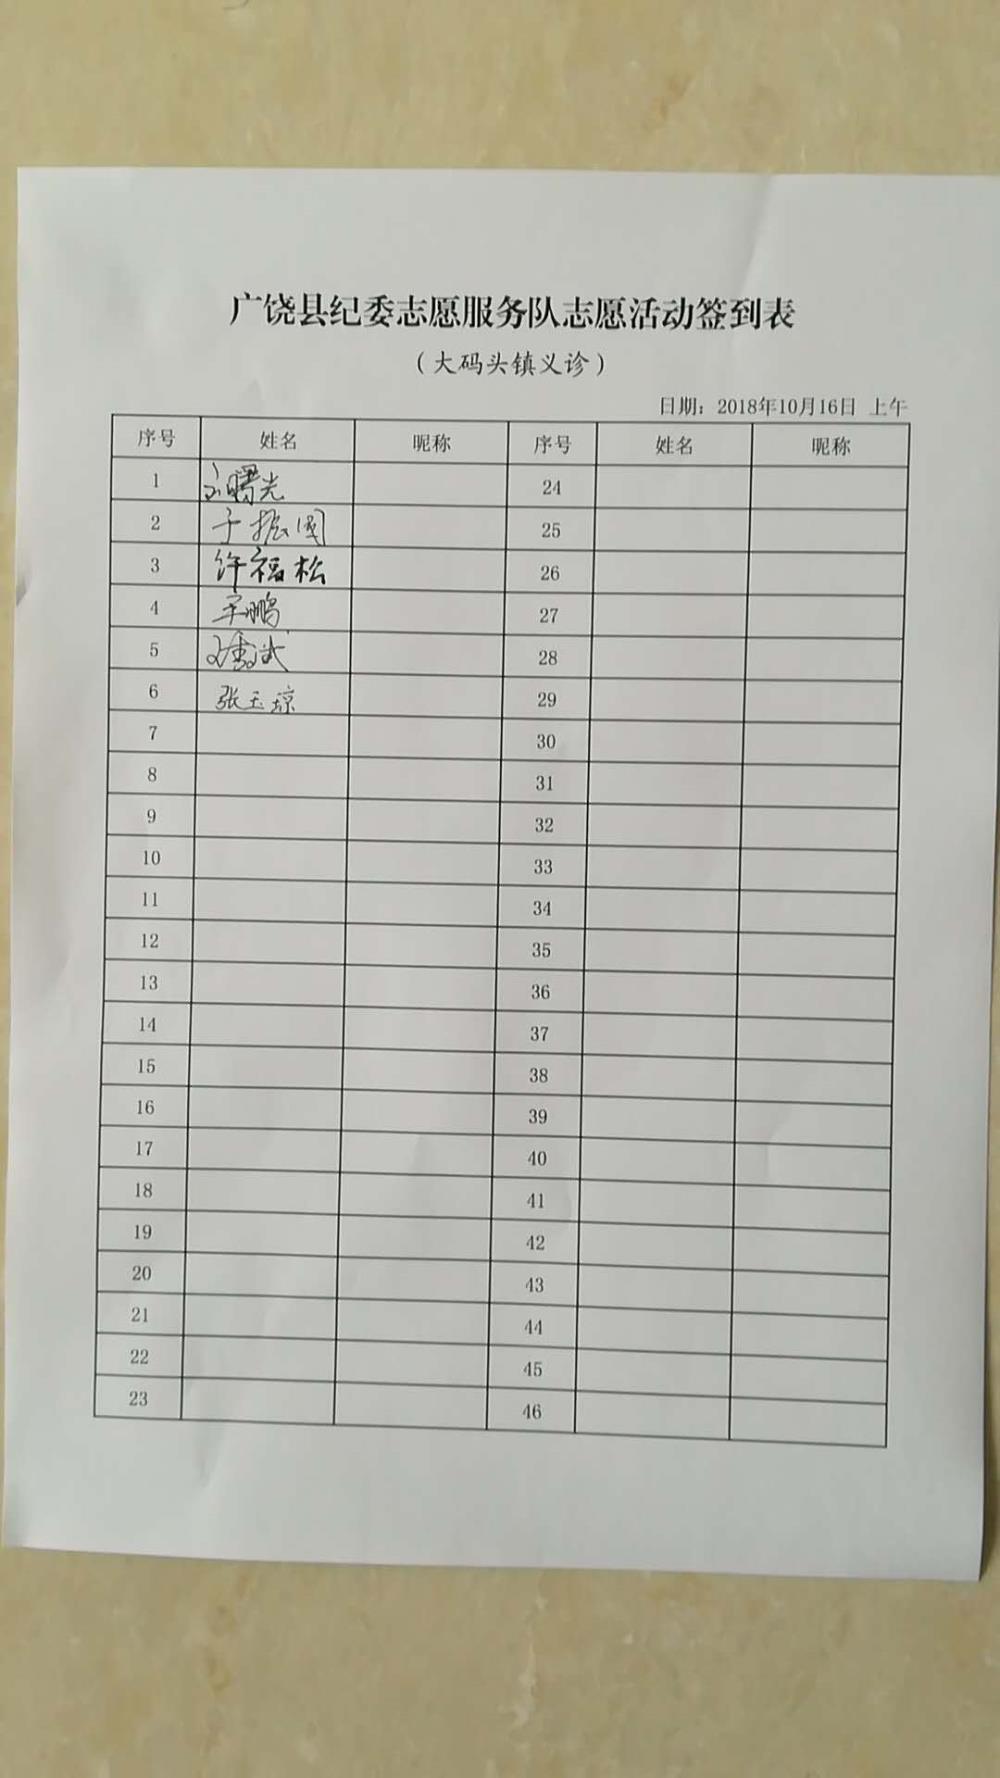 广饶县纪委志愿服务队志愿活动签到表
（大码头镇义诊）
日期：2018年10月16日 上午
序号 姓名 昵称 序号 姓名 昵称
1 刘曙光 24
2 于振国 25
3 许福松 26
4 鹏 27
5 28
6 张玉琼 29
7 30
8 31
9 32
10 33
11 34
12 35
13 36
14 37
15 38
16 39
17 40
18 41
19 42
20 43
21 44
22 45
23 46